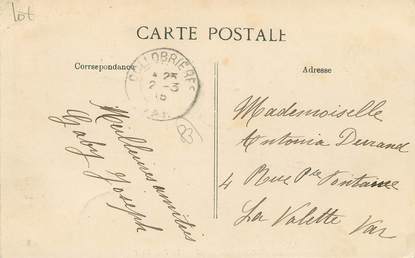 lot
CARTE POSTALE
Correspondance
Adresse
COLLOBRIÈRES
4 25
2-3
VAR
Meilleures amitiés
Gaby Joseph
Mademoiselle
Antonia Durand
4 Rue Pte Fontaine
La Valette Var